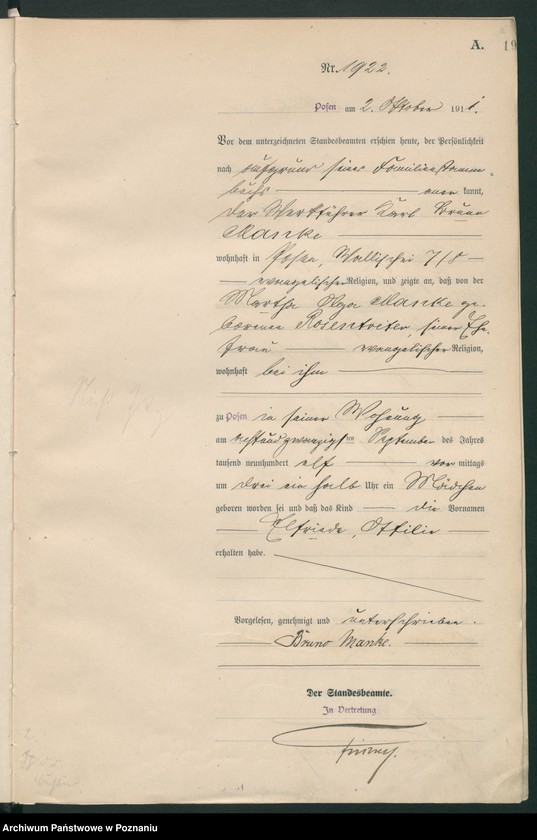 A.
19
Nr. 1922.
Posen am 2. Oktober 1911.
Vor dem unterzeichneten Standesbeamten erschien heute, der Persönlichkeit
nach aufgrund seines Familienstamm-
buchs anerkannt,
der Werkführer Karl Bruno
Manke
wohnhaft in Posen, Wallischei 7/8
evangelischer Religion, und zeigte an, daß von der
Martha Olga Manke ge-
borenen Rosentreter, seiner Ehe-
frau evangelischer Religion,
wohnhaft bei ihm
zu Posen in seiner Wohnung
am achtundzwanzigsten September des Jahres
tausend neunhundert elf vormittags
um drei ein halb Uhr ein Mädchen
geboren worden sei und daß das Kind die Vornamen
Elfriede, Ottilie
erhalten habe.
Vorgelesen, genehmigt und unterschrieben.
Bruno Manke.
Der Standesbeamte.
In Vertretung
Archiwum Państwowe w Poznaniu